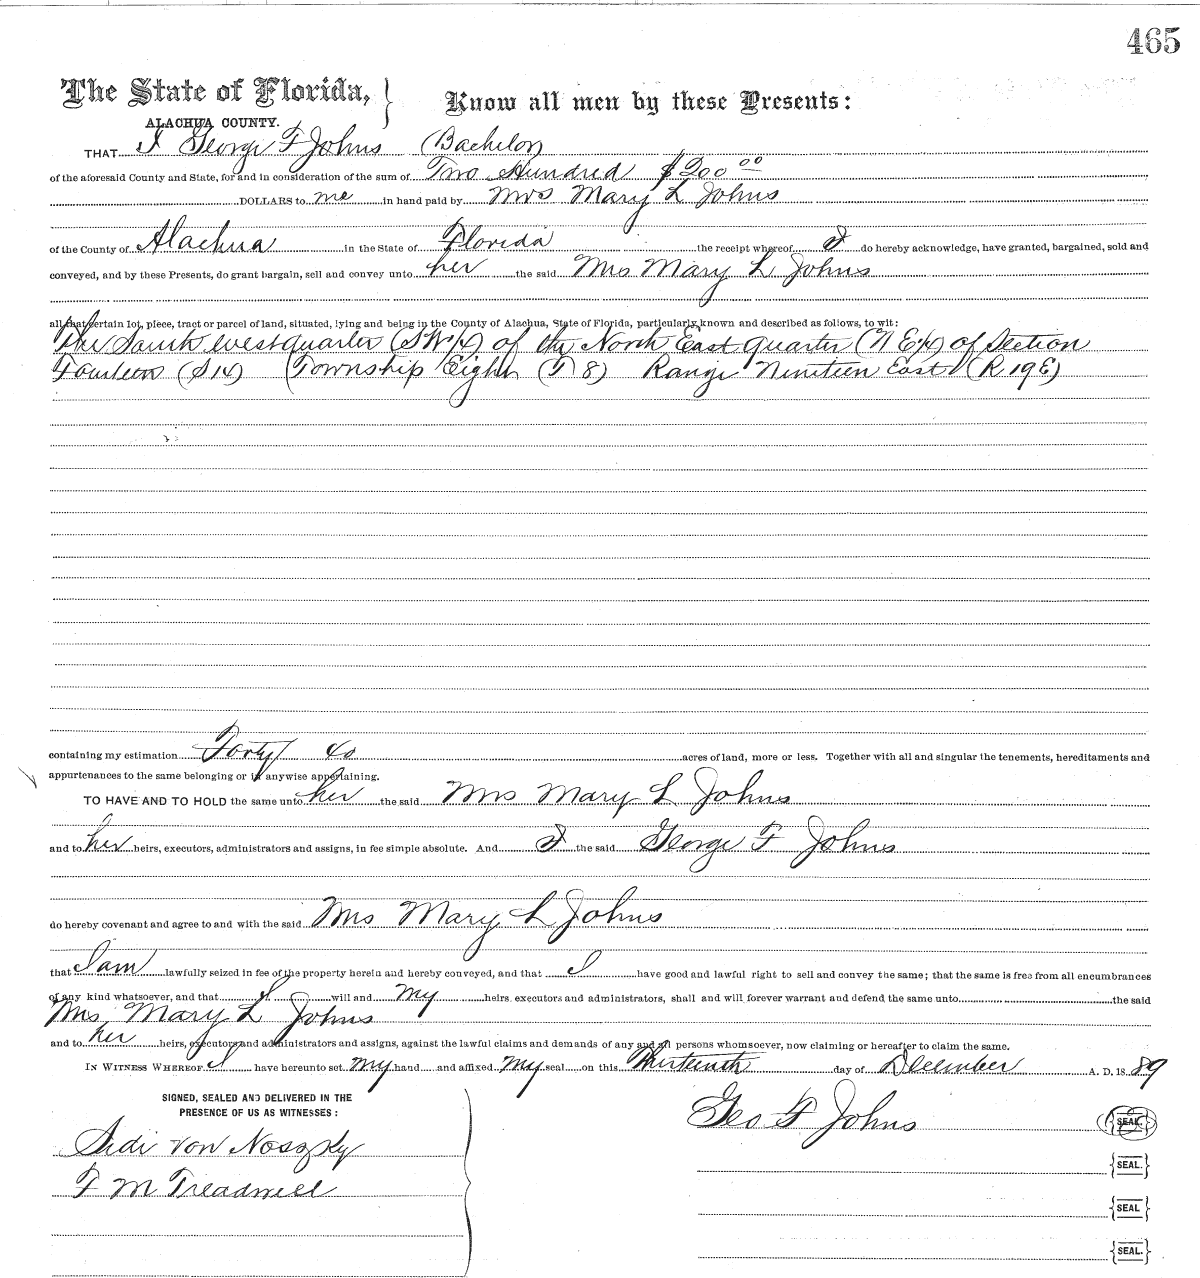 465
The State of Florida, Know all men by these Presents:
ALACHUA COUNTY.
THAT I George F Johns (Bachelor)
of the aforesaid County and State, for and in consideration of the sum of Two Hundred $200 00
DOLLARS to me in hand paid by Mrs Mary L Johns
of the County of Alachua in the State of Florida the receipt whereof I do hereby acknowledge, have granted, bargained, sold and
conveyed, and by these Presents, do grant bargain, sell and convey unto her the said Mrs Mary L Johns
all that certain lot, piece, tract or parcel of land, situated, lying and being in the County of Alachua, State of Florida, particularly known and described as follows, to wit:
The South west quarter (SW ¼) of the North East quarter (N E ¼) of Section
Fourteen (S14) (Township Eight (T 8) Range Nineteen East (R 19 E)
containing my estimation Forty 40 acres of land, more or less. Together with all and singular the tenements, hereditaments and
appurtenances to the same belonging or in anywise appertaining.
TO HAVE AND TO HOLD the same unto her the said Mrs Mary L Johns
and to her heirs, executors, administrators and assigns, in fee simple absolute. And I the said George F Johns
do hereby covenant and agree to and with the said Mrs Mary L Johns
that I am lawfully seized in fee of the property herein and hereby conveyed, and that I have good and lawful right to sell and convey the same; that the same is free from all encumbrances
of any kind whatsoever, and that I will and my heirs, executors and administrators, shall and will forever warrant and defend the same unto the said
Mrs Mary L Johns
and to her heirs, executors and administrators and assigns, against the lawful claims and demands of any and all persons whomsoever, now claiming or hereafter to claim the same.
IN WITNESS WHEREOF I have hereunto set my hand and affixed my seal on this Thirteenth day of December A. D. 1889
SIGNED, SEALED AND DELIVERED IN THE
PRESENCE OF US AS WITNESSES:
Geo F Johns SEAL.
Sidi von Noszky
SEAL.
F M Treadwell
SEAL
SEAL.